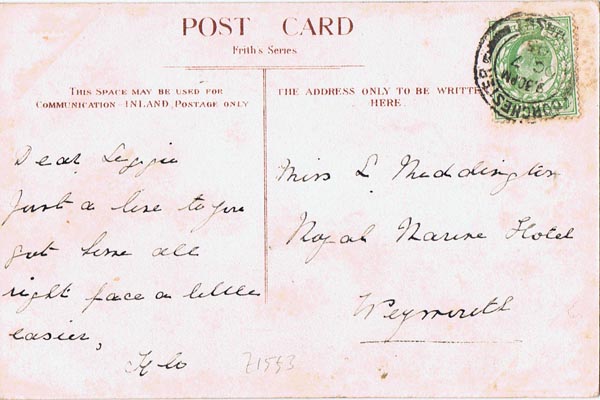 POST CARD
Frith's Series
THIS SPACE MAY BE USED FOR
COMMUNICATION - INLAND POSTAGE ONLY
THE ADDRESS ONLY TO BE WRITTEN
HERE.
DORCHESTER
Dear
Just a line to you
got home all
right face a little
easier,
Miss L Maddington
Royal Marine Hotel
Weymouth
Z1553